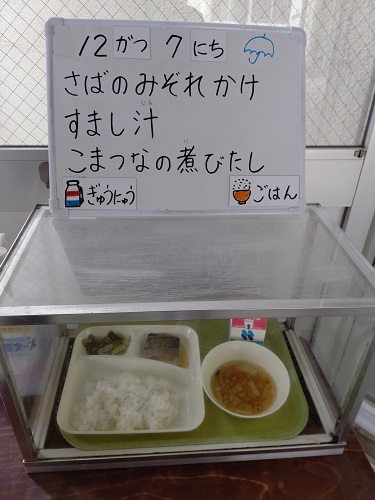 12がつ 7にち
さばのみぞれかけ
すまし汁
じる
こまつなの煮びたし
に
ぎゅうにゅう ごはん